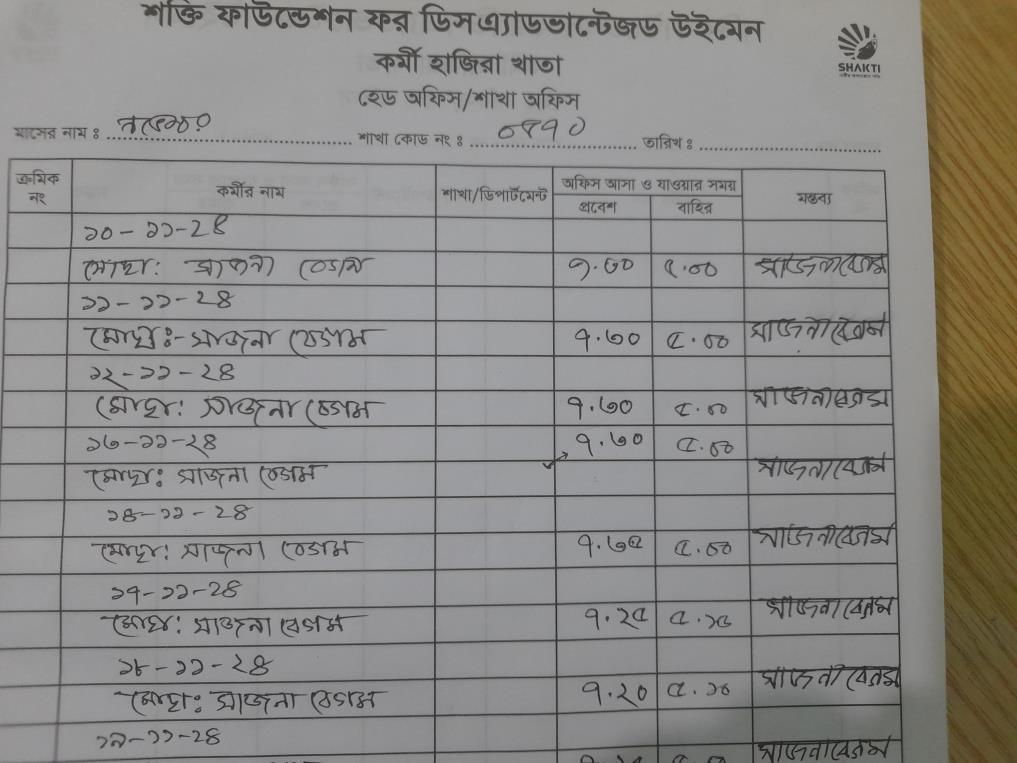 শক্তি ফাউন্ডেশন ফর ডিসএ্যাডভান্টেজড উইমেন
SHAKTI
কর্মী হাজিরা খাতা
হেড অফিস/শাখা অফিস
মাসের নাম ঃ নভেম্বর শাখা কোড নং ঃ ০৪৭০ তারিখ ঃ
ক্রমিক নং কর্মীর নাম শাখা/ডিপার্টমেন্ট অফিস আসা ও যাওয়ার সময় মন্তব্য
প্রবেশ বাহির
১০-১১-২৪
মোছা: সাজনা বেগম ৭.৩০ ৫.০০ সাজনা বেগম
১১-১১-২৪
মোছাঃ- সাজনা বেগম ৭.৩০ ৫.০০ সাজনা বেগম
১২-১১-২৪
মোছা: সাজনা বেগম ৭.৩০ ৫.০০ সাজনা বেগম
১৩-১১-২৪ ৭.৩০ ৫.০০
মোছা: সাজনা বেগম সাজনা বেগম
১৪-১১-২৪
মোছা: সাজনা বেগম ৭.৩৫ ৫.০০ সাজনা বেগম
১৭-১১-২৪
মোছা: সাজনা বেগম ৭.২৫ ৫.১৫ সাজনা বেগম
১৮-১১-২৪
মোছা: সাজনা বেগম ৭.২০ ৫.১০ সাজনা বেগম
১৯-১১-২৪
সাজনা বেগম